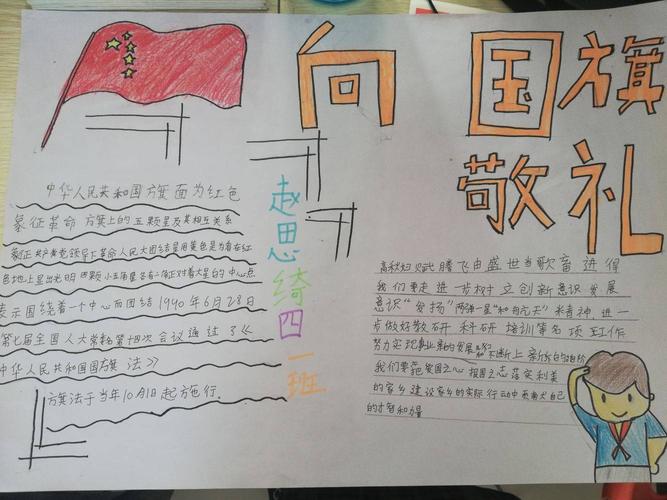 向国旗
敬礼
中华人民共和国旗面为红色
象征革命 旗上的五颗星及其相互关系
象征共产党领导下革命人民大团结星用黄色是为着在红
色地上显出光明 四颗小五角星各有一角正对着大星的中心点
表示围绕着一个中心而团结1990年6月28日
第七届全国人大常委第十四次会议通过了《
中华人民共和国国旗法》
旗法于当年10月1日起方施行.
赵思绮四一班
腾飞由盛世当歌奋进得
我们要走进一步树立创新意识发展
意识"发扬"两弹一星"和航天"精神,进一
步做好教研 科研 培训等各项工作
努力实现事业的发展不断上新的台阶
我们要把爱国之心 报国之志落实到美
的家乡建设家乡的实际行动中自己
的才智和力量